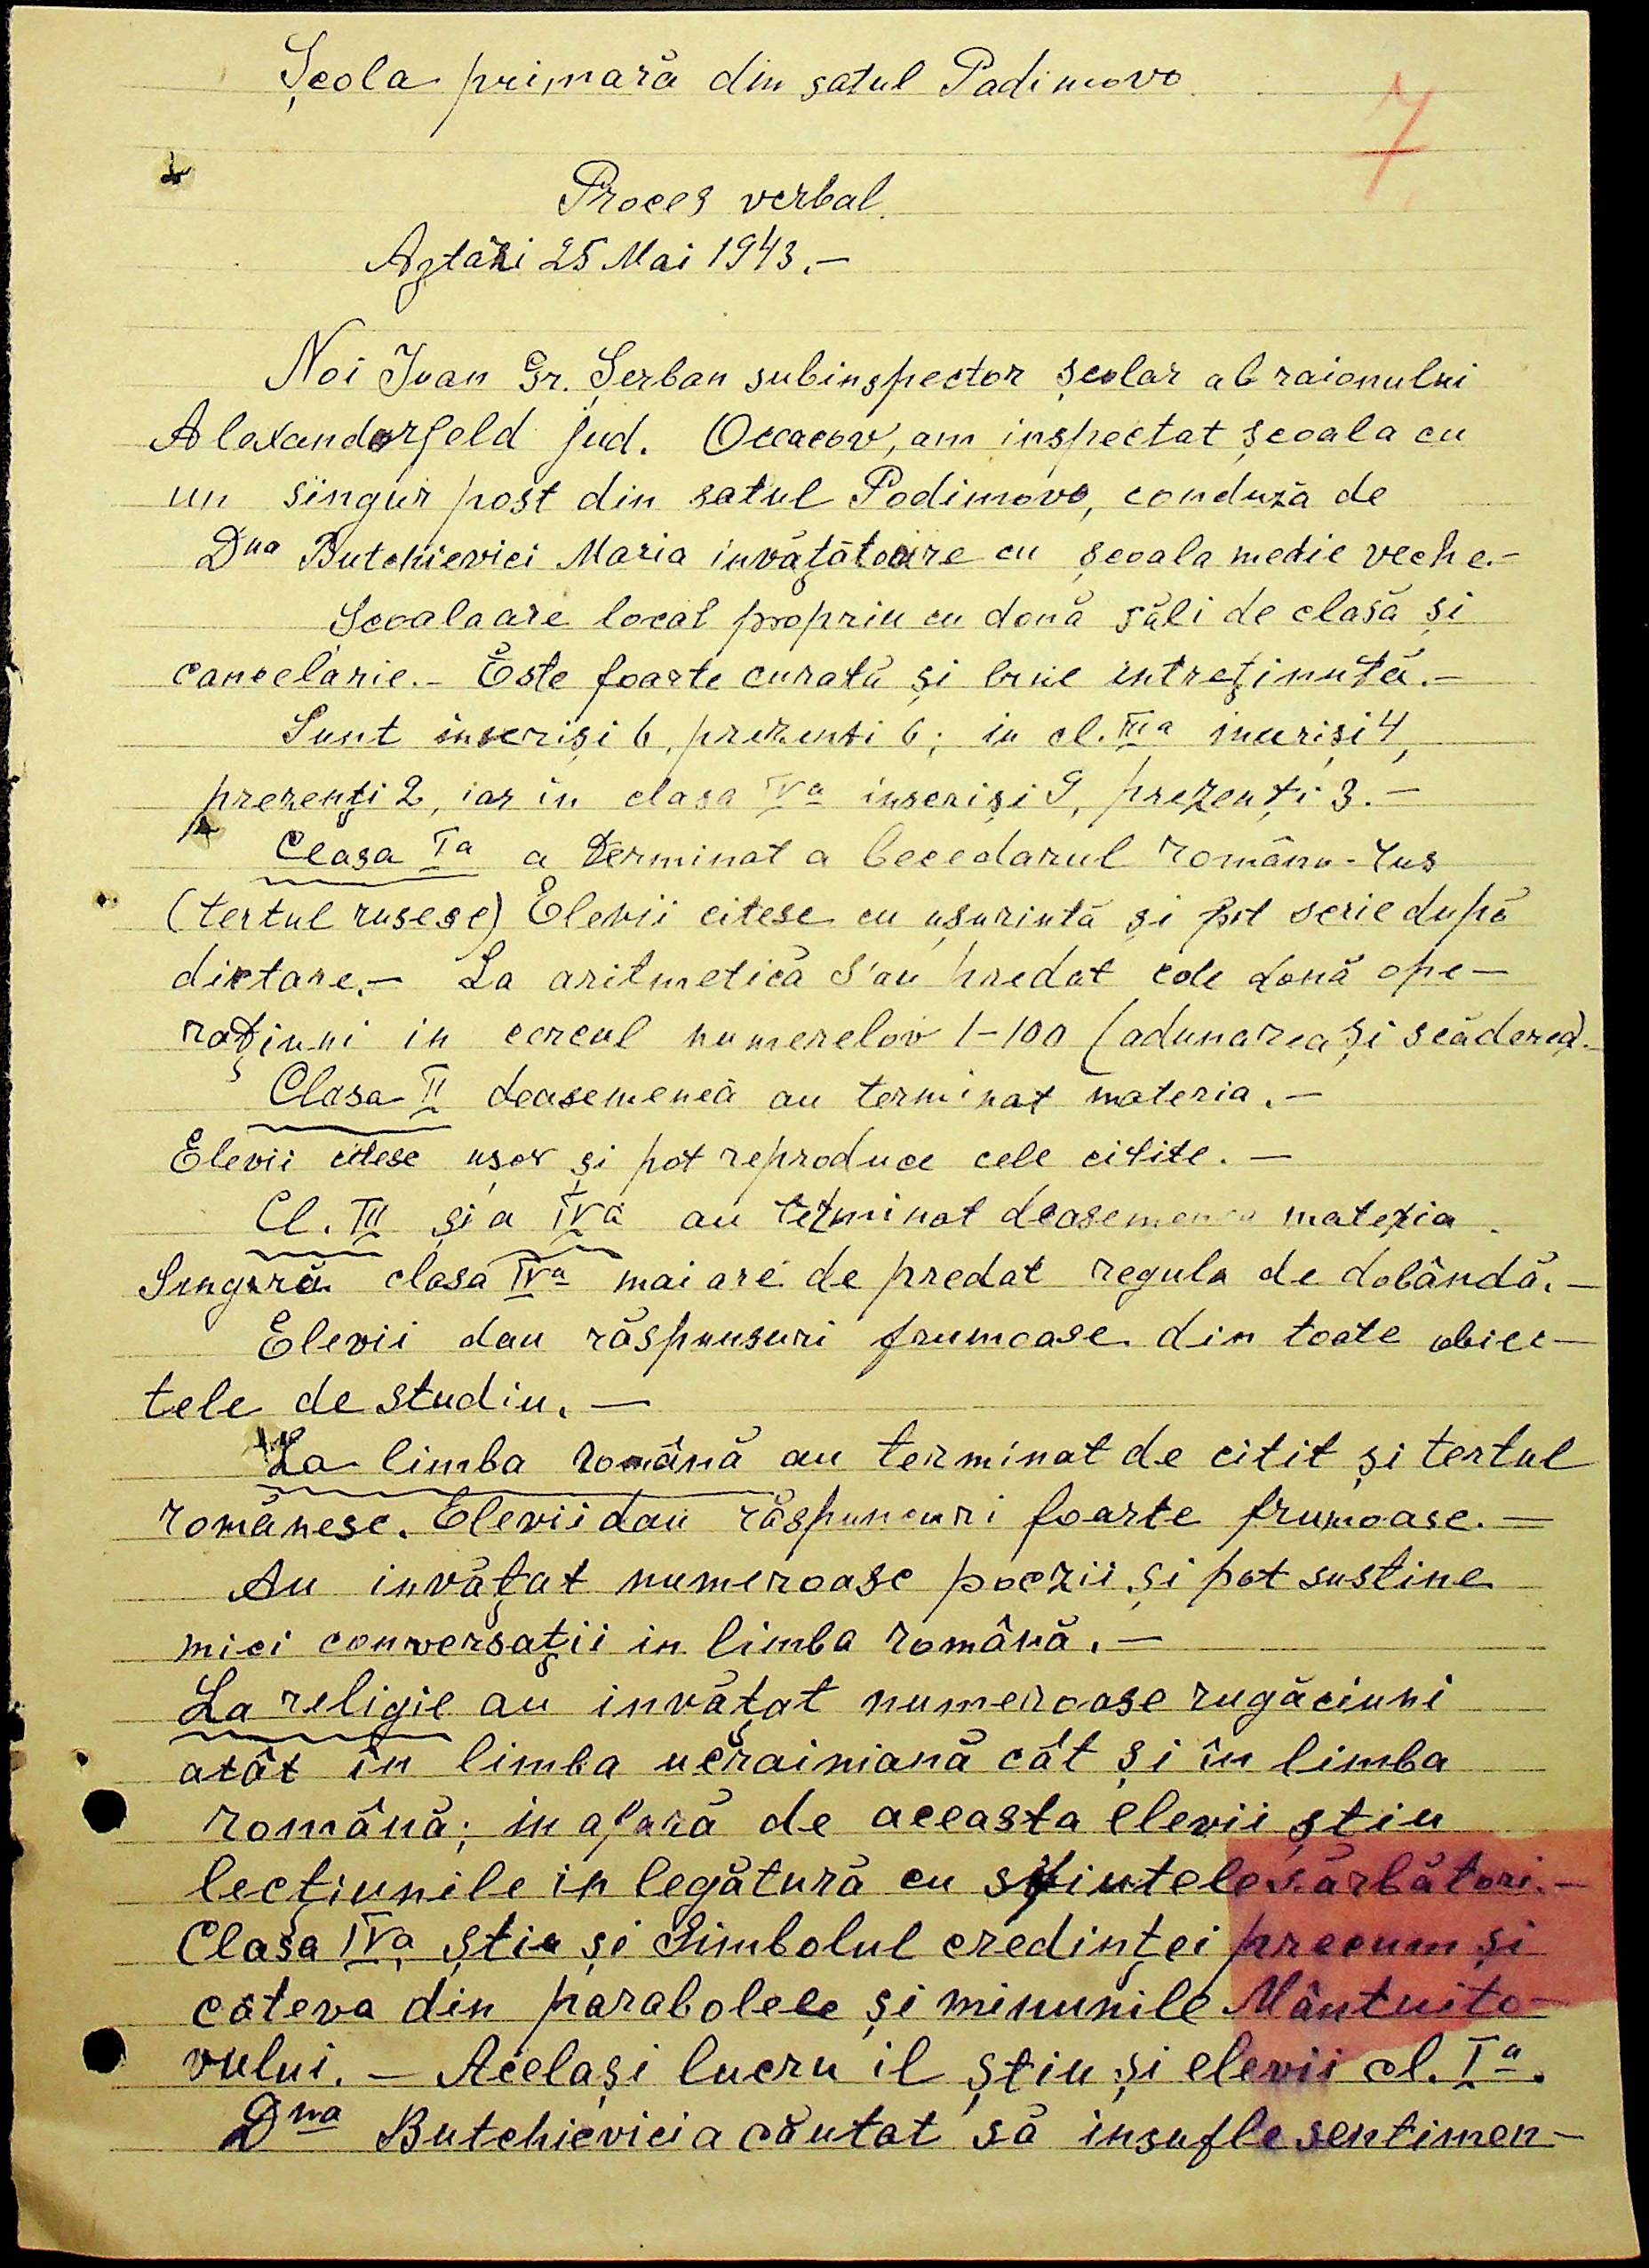 Școla primară din satul Padimovo.
7
Proces verbal.
Astăzi 25 Mai 1943.-
Noi Ivan Gr. Șerban subinspector școlar al raionului
Alexanderfeld jud. Occacov, am inspectat școala cu
un singur post din satul Podimovo, conduză de
Dna Butchievici Maria invățătoare cu școala medie veche.-
Scoala are local propriu cu două săli de clasă și
cancelarie.- Este foarte curată și bine intreținută.-
Sunt inscriși 6, prezenti 6; in cl. IIIa incriși 4,
prezenți 2, iar in clasa IVa inscriși 9, prezenți 3.-
Clasa Ia a terminat abecedarul româno-rus
(tertul rusesc) Elevii citesc cu ușurintă și pot scrie după
dictare.- La aritmetică s'au predat cele două ope-
rațiuni in cercul numerelor 1-100 (adunarea și scăderea).-
Clasa II deasemenea au terminat materia.-
Elevii citesc ușor și pot reproduce cele citite.-
Cl. III și a IVa au terminat deasemenea materia.
Singură clasa IVa mai are de predat regula de dobândă.-
Elevii dau răspunsuri frumoase din toate obiec-
tele de studiu.-
La limba română au terminat de citit și tertul
românesc. Elevii dau răspunsuri foarte frumoase.-
Au invățat numeroase poezii și pot sustine
mici conversații in limba română.-
La religie au invățat numeroase rugăciuni
atât în limba ucrainiană cât și în limba
română; in afară de aceasta elevii știu
lecțiunile in legătură cu sfintele sărbători.-
Clasa IVa știe și Simbolul credinței precum și
câteva din parabolele și minunile Mântuito-
rului.- Același lucru il știu și elevii cl. Ia.
Dna Butchievici a căutat să insufle sentimen-